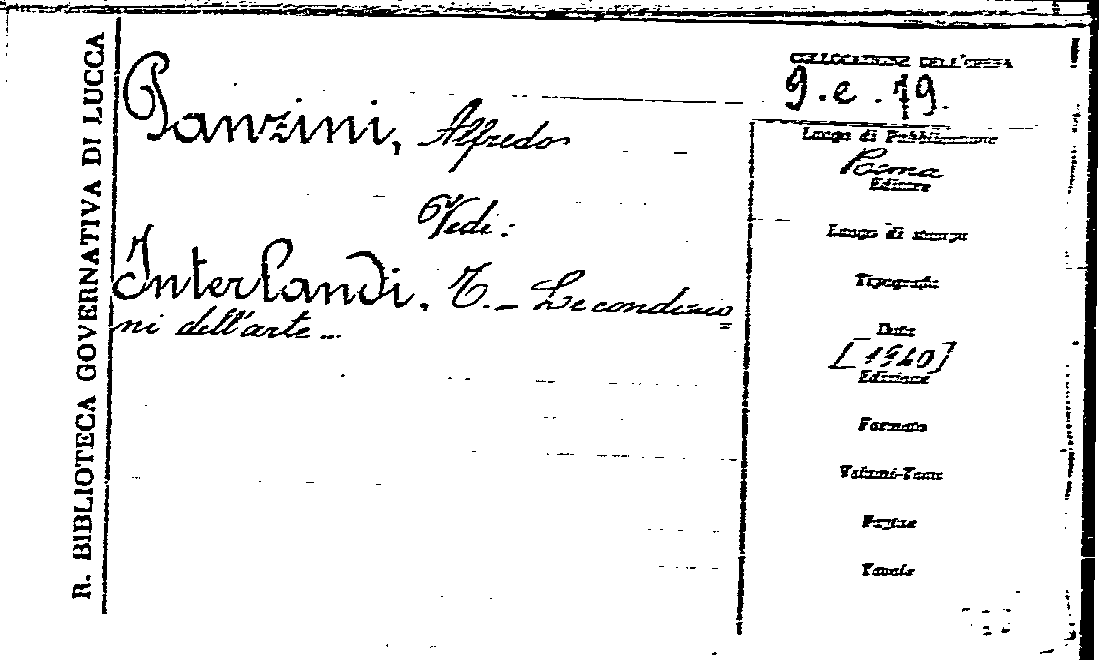 R. BIBLIOTECA GOVERNATIVA DI LUCCA
Panzini, Alfredo
Vedi:
Interlandi, T. - Le condizio=
ni dell'arte...
COLLOCAZIONE DELL'OPERA
9.e.19.
Luogo di Pubblicazione
Roma
Editore
Luogo di stampa
Tipografia
Data
[1940]
Edizione
Formato
Volumi-Tomi
Pagine
Tavole